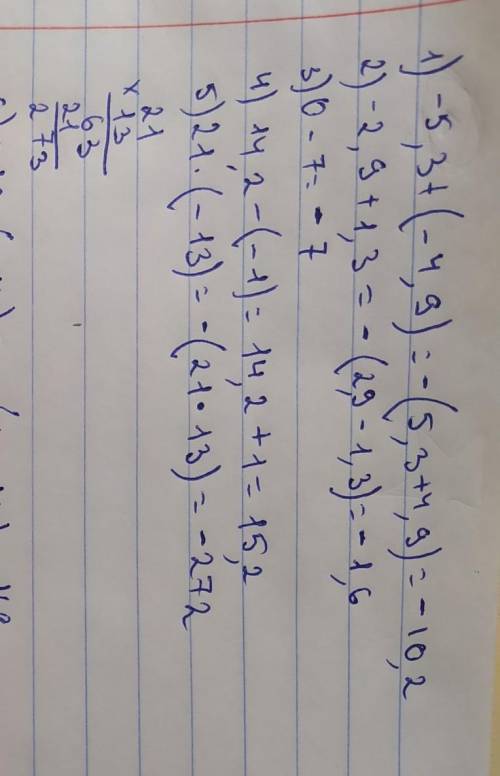 1) -5,3+(-4,9)=-(5,3+4,9)=-10,2
2) -2,9+1,3=-(2,9-1,3)=-1,6
3) 0-7=-7
4) 14,2-(-1)=14,2+1=15,2
5) 21·(-13)=-(21·13)=-272
21
×13
63
21
273